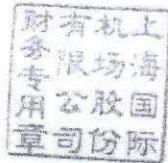 上海国际
机场股份
有限公司
财务专用章